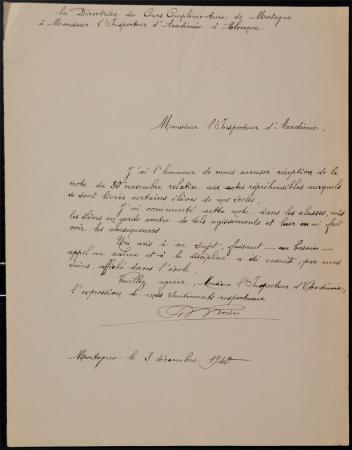 La Directrice du Cours Complémentaire de Mortagne
à Monsieur l'Inspecteur d'Académie à Alençon
Monsieur l'Inspecteur d'Académie,
J'ai l'honneur de vous accuser réception de la
note du 30 novembre relative aux actes répréhensibles auxquels
se sont livrés certains élèves de nos écoles.
J'ai commenté cette note dans les classes, mis
les élèves en garde contre de tels agissements et leur en ai fait
voir les conséquences.
Un avis à ce sujet, faisant - au besoin -
appel au calme et à la discipline a été ensuite, par mes
soins, affiché dans l'école.
Veuillez agréer, Monsieur l'Inspecteur d'Académie,
l'expression de mes sentiments respectueux.
Mortagne le 3 décembre 1940